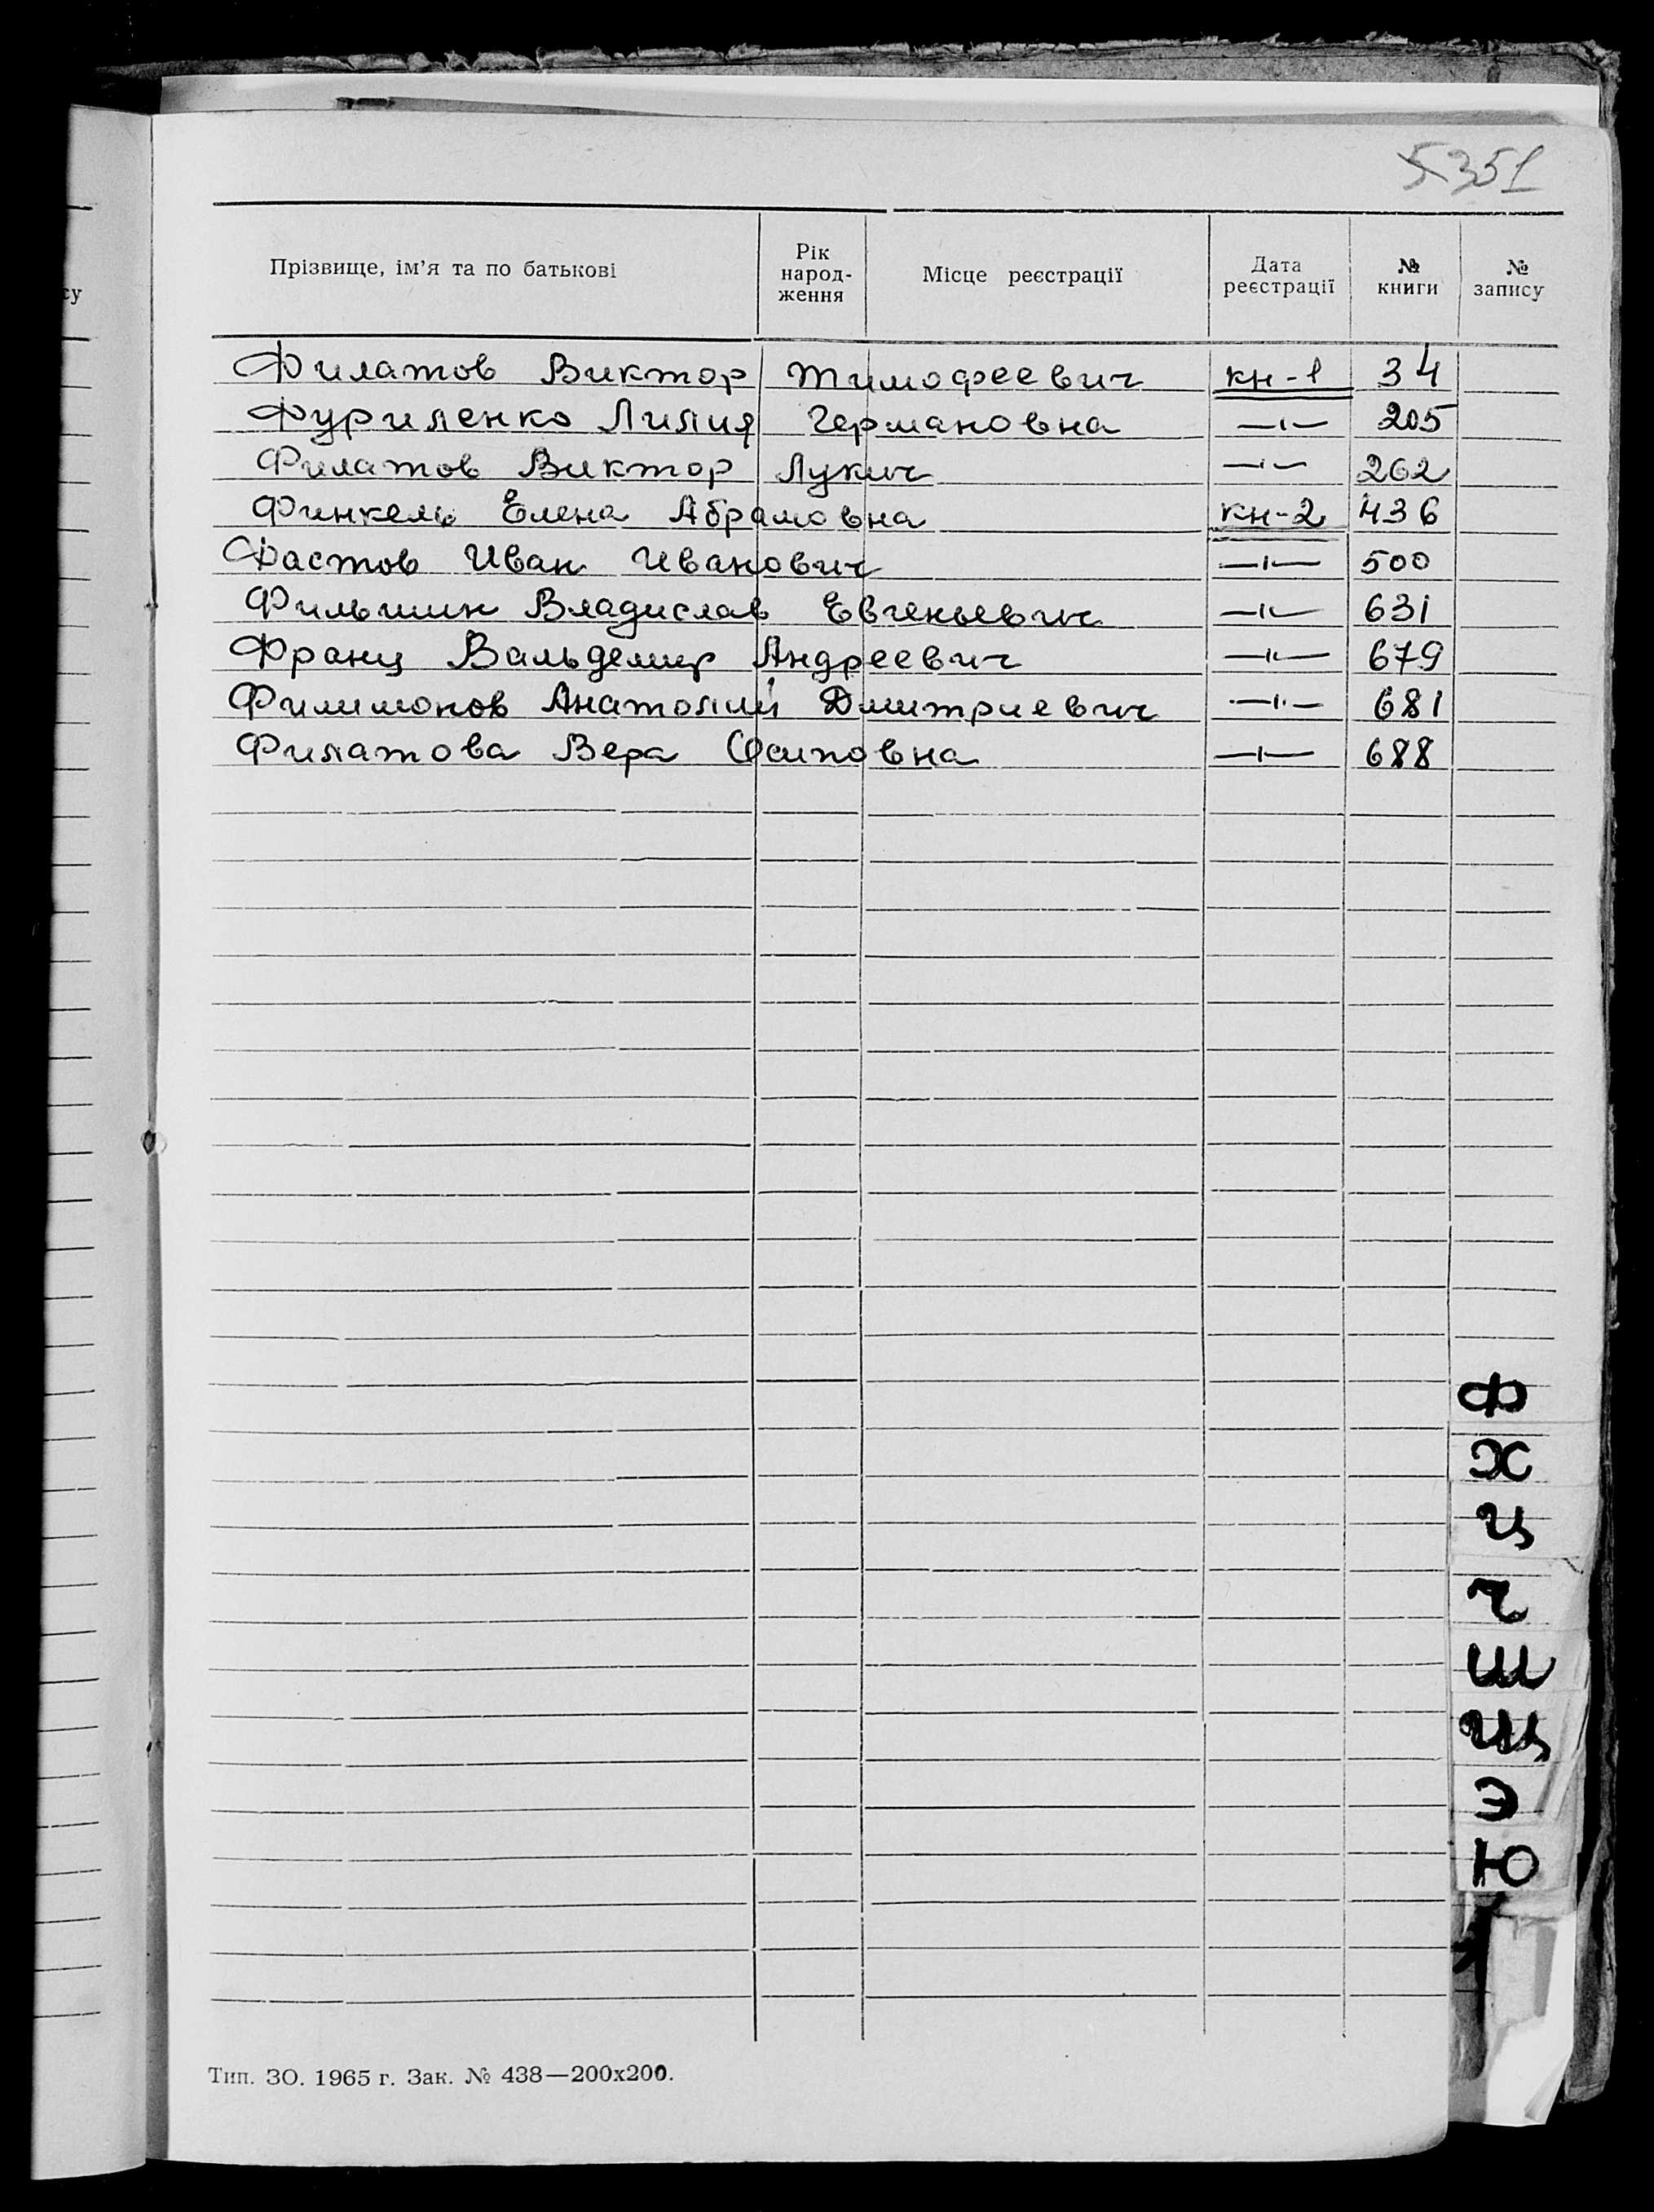 5351
Прізвище, ім'я та по батькові Рік народ-ження Місце реєстрації Дата реєстрації № книги № запису
Филатов Виктор Тимофеевич кн-1 34
Фуриленко Лилия Германовна —"— 205
Филатов Виктор Лукич —"— 262
Финкель Елена Абрамовна кн-2 436
Фастов Иван Иванович —"— 500
Фильшин Владислав Евгеньевич —"— 631
Франц Вальдемир Андреевич —"— 679
Филимонов Анатолий Дмитриевич —"— 681
Филатова Вера Осиповна —"— 688
Ф
Х
Ц
Ч
Ш
Щ
Э
Ю
Тип. ЗО. 1965 г. Зак. № 438—200х200.